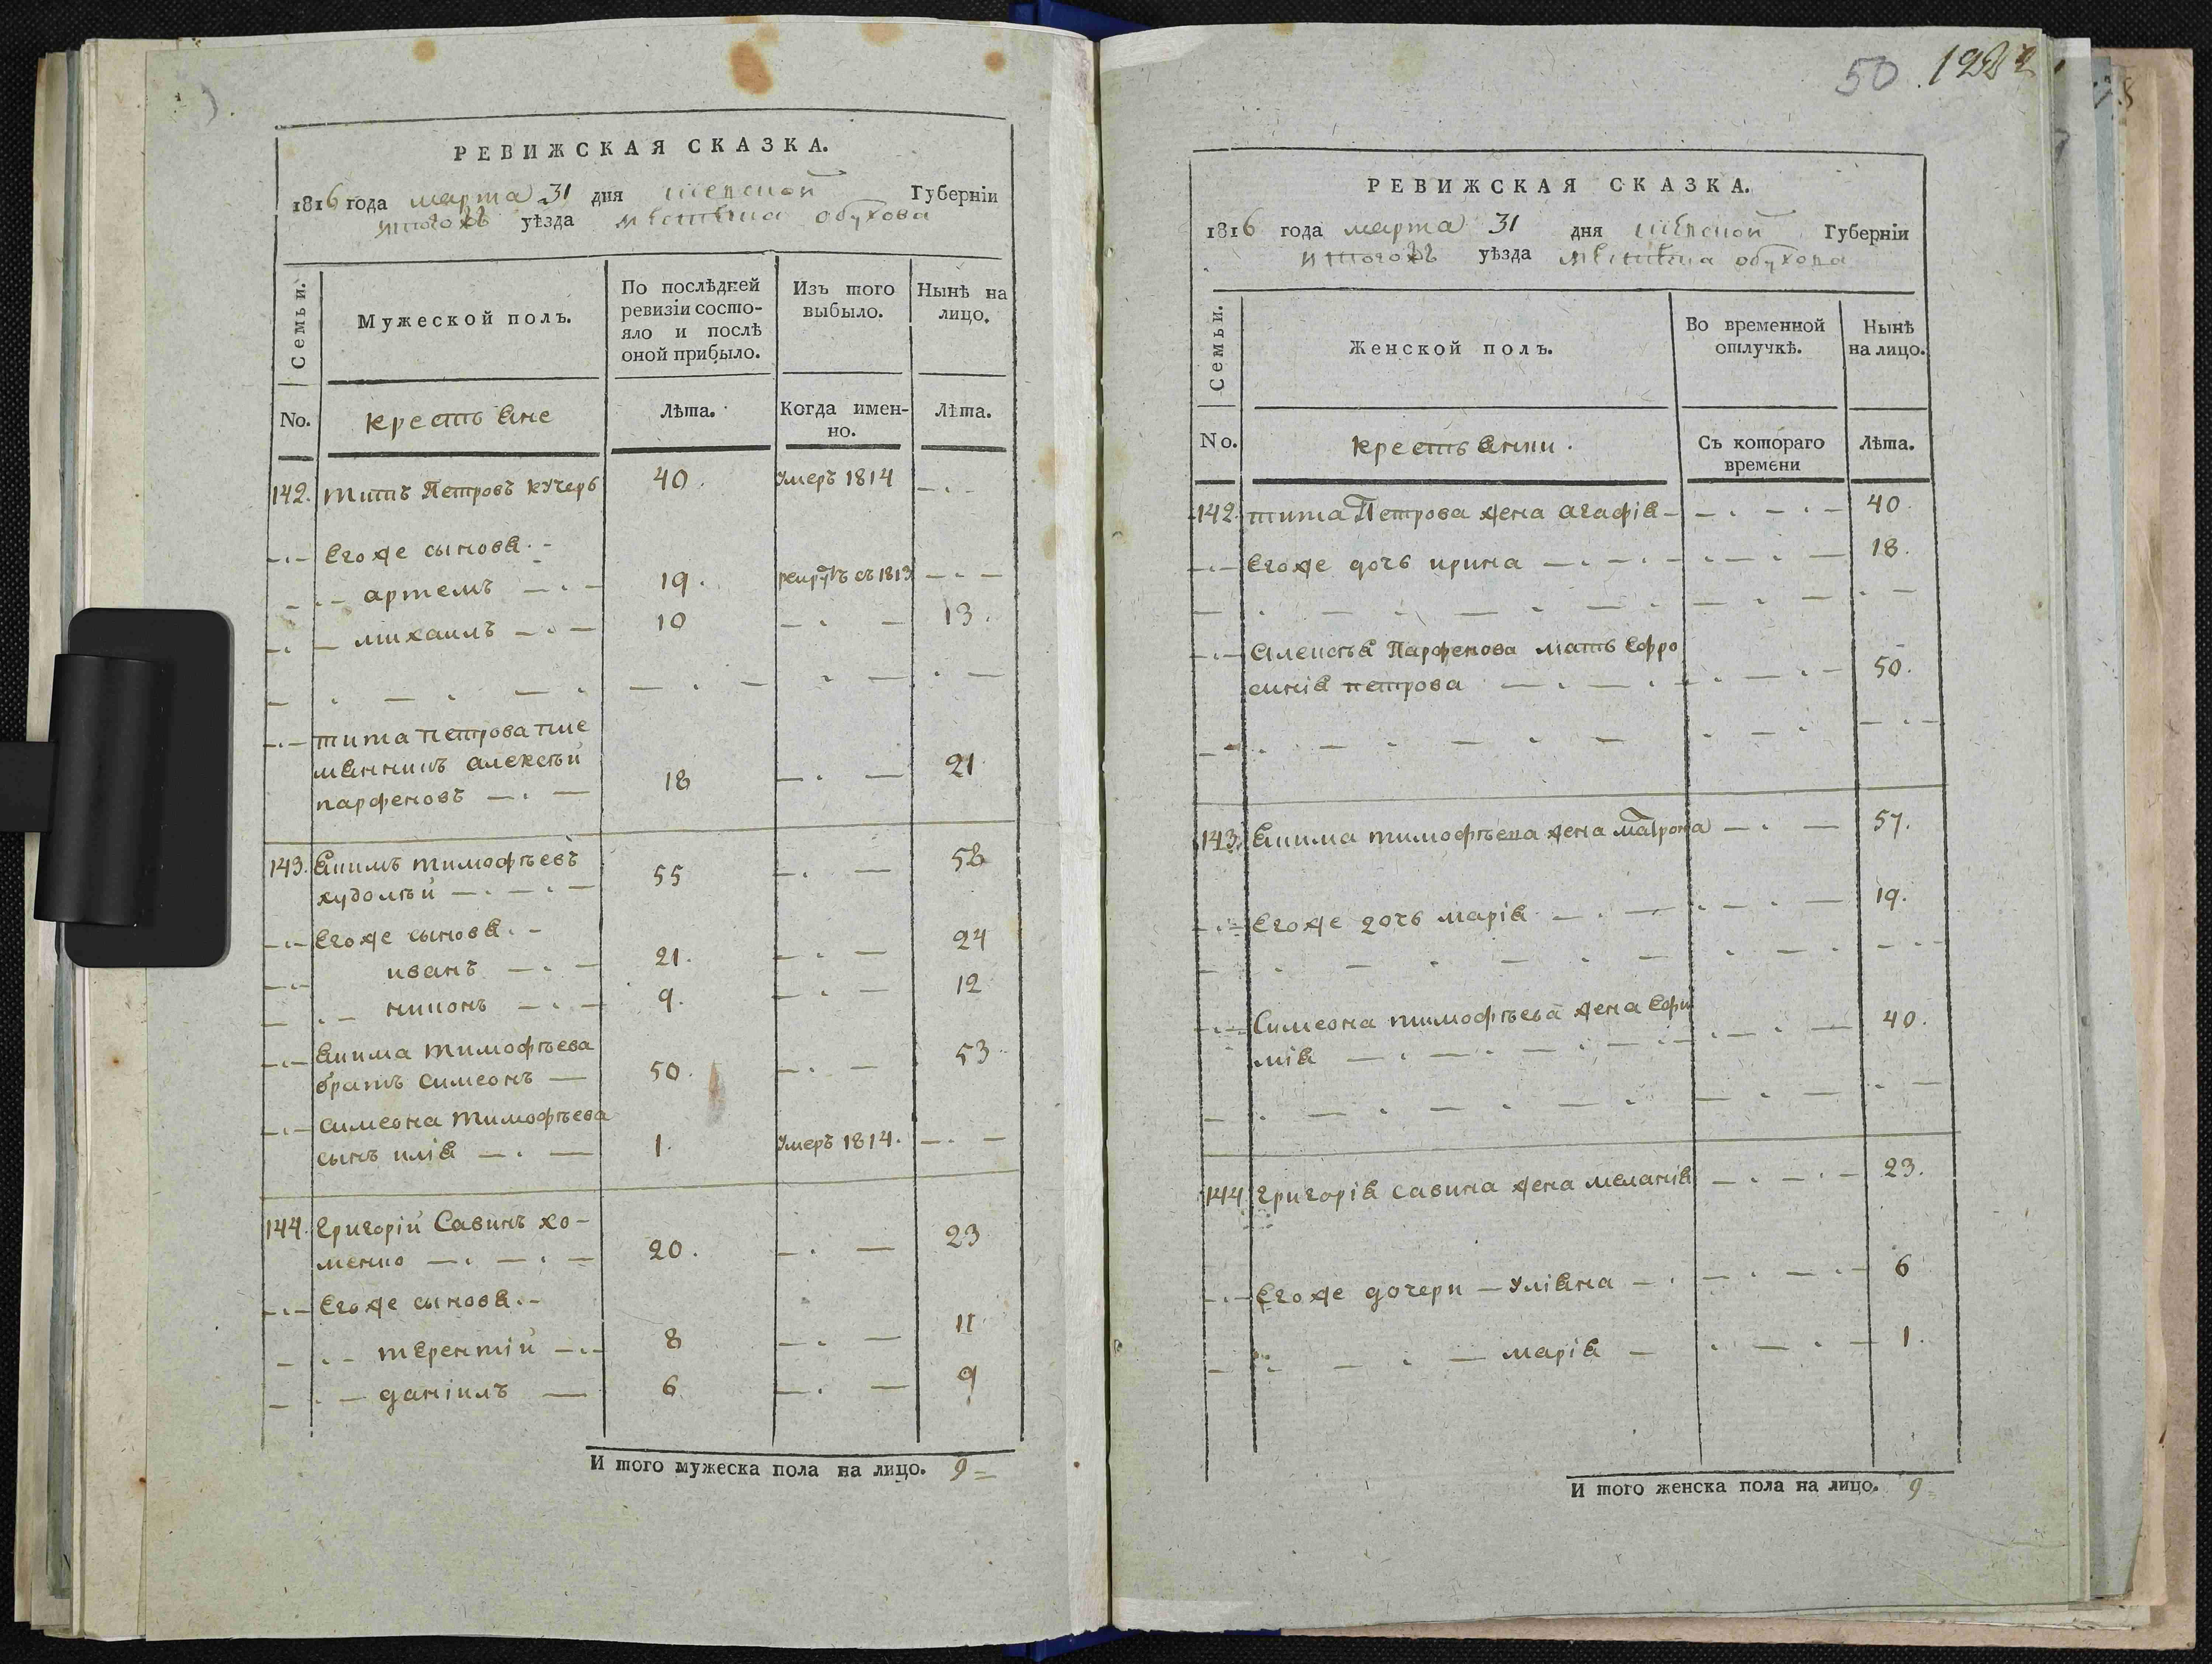 РЕВИЖСКАЯ СКАЗКА.
1816 года марта 31 дня Киевской Губернiи
уѣзда мѣстечка обухова
Семьи.
Мужеской полъ.
По послѣдней ревизiи состо-
яло и послѣ
оной прибыло.
Изъ того
выбыло.
Нынѣ на
лицо.
No.
крестьяне
Лѣта.
Когда имен-
но.
Лѣта.
142. титъ Петровъ кучеръ 40. умеръ 1814
Егоже сыновя
артемъ 19. рекрутъ съ 1813
михаилъ 10 13.
тита петрова пле
мянникъ алексѣй
парфеновъ 18 21
143. Якимъ тимофѣевъ
худолѣй 55 58
Егоже сыновя
иванъ 21. 24
никонъ 9. 12
Якима тимофѣева
братъ симеонъ 50. 53
симеона тимофѣева
сынъ илiя 1. умеръ 1814.
144. григорiй Савинъ хо-
менко 20. 23
Егоже сыновя
терентiй 8 11
данiилъ 6 9
И того мужеска пола на лицо. 9
50 122
РЕВИЖСКАЯ СКАЗКА.
1816 года марта 31 дня Киевской Губернiи
уѣзда мѣстечка обухова
Семьи.
Женской полъ.
Во временной
отлучкѣ.
Нынѣ
на лицо.
No.
крестьянки.
Съ котораго
времени
Лѣта.
142. тита Петрова жена агафiя 40.
Егоже дочь ирина 18.
Алексѣя Парфенова мать Ефро
синiя петрова 50.
143. Якима тимофѣева жена матрона 57.
Егоже дочь марiя 19.
Симеона тимофѣева жена Ефи
мiя 40.
144 григорiя савина жена меланiя 23.
Егоже дочери улiяна 6
марiя 1.
И того женска пола на лицо. 9